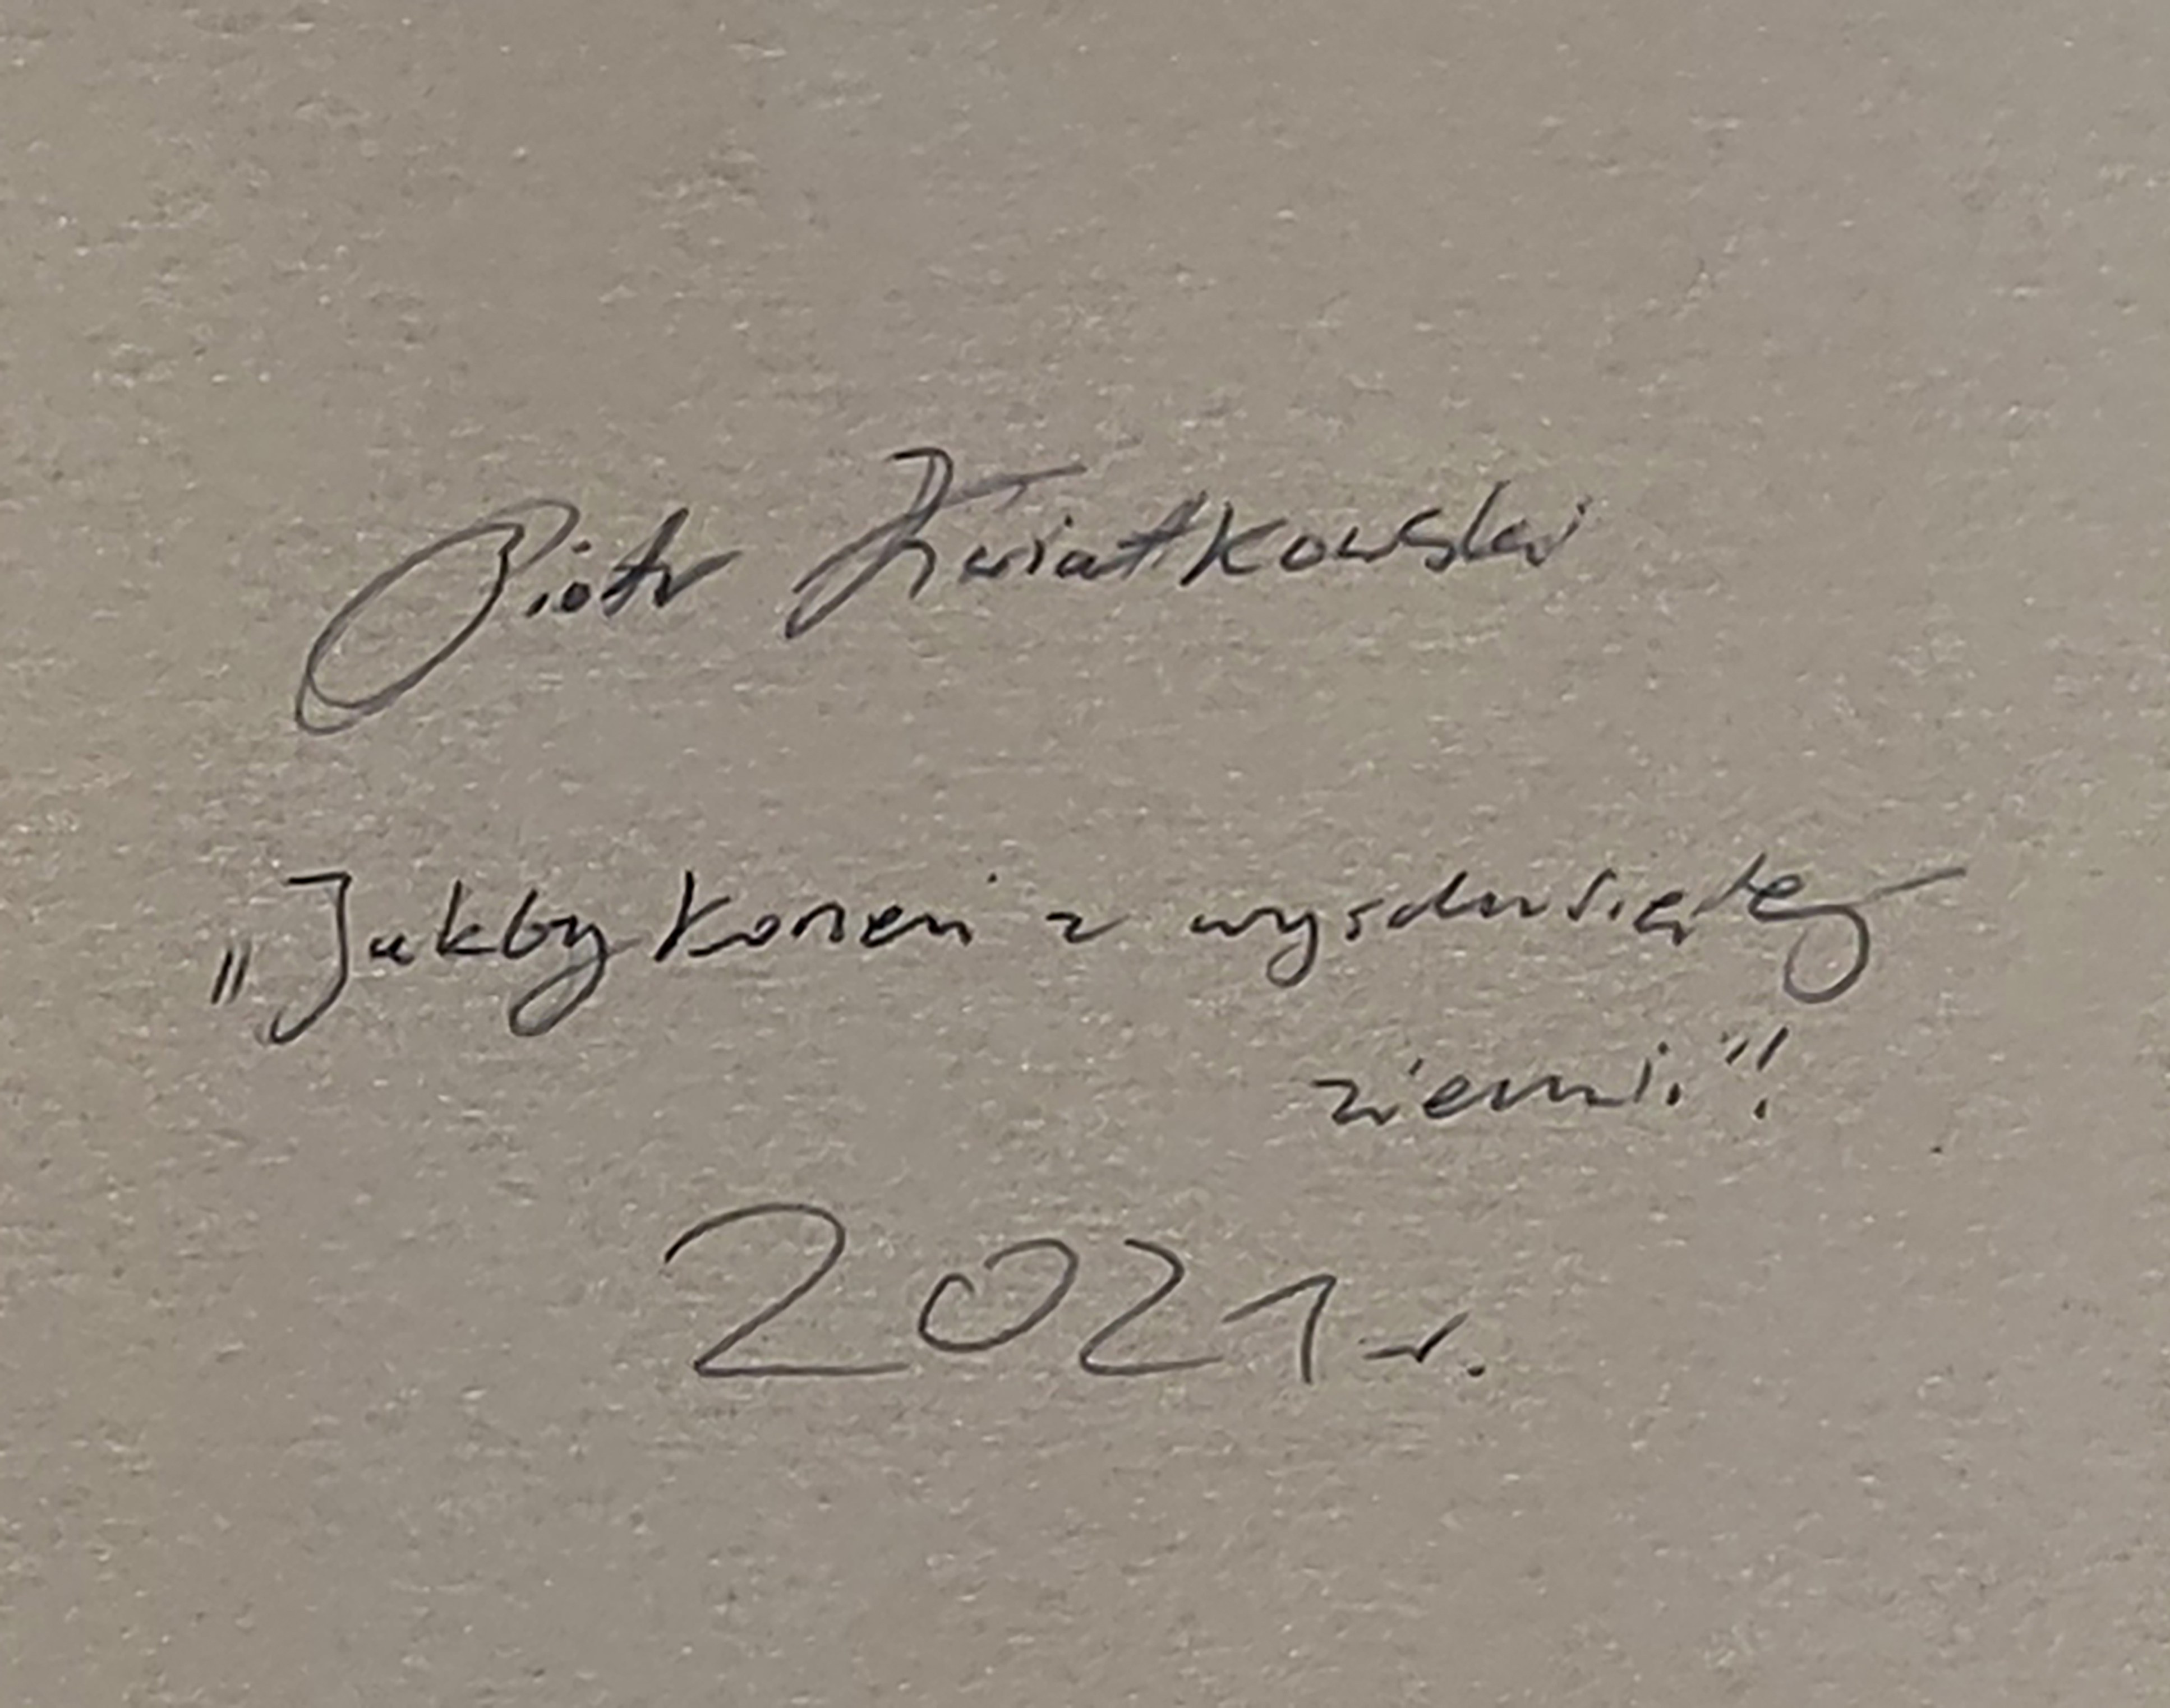 Piotr Kwiatkowski
„Jakby korzeń z wyschniętej
ziemi."!
2021 r.